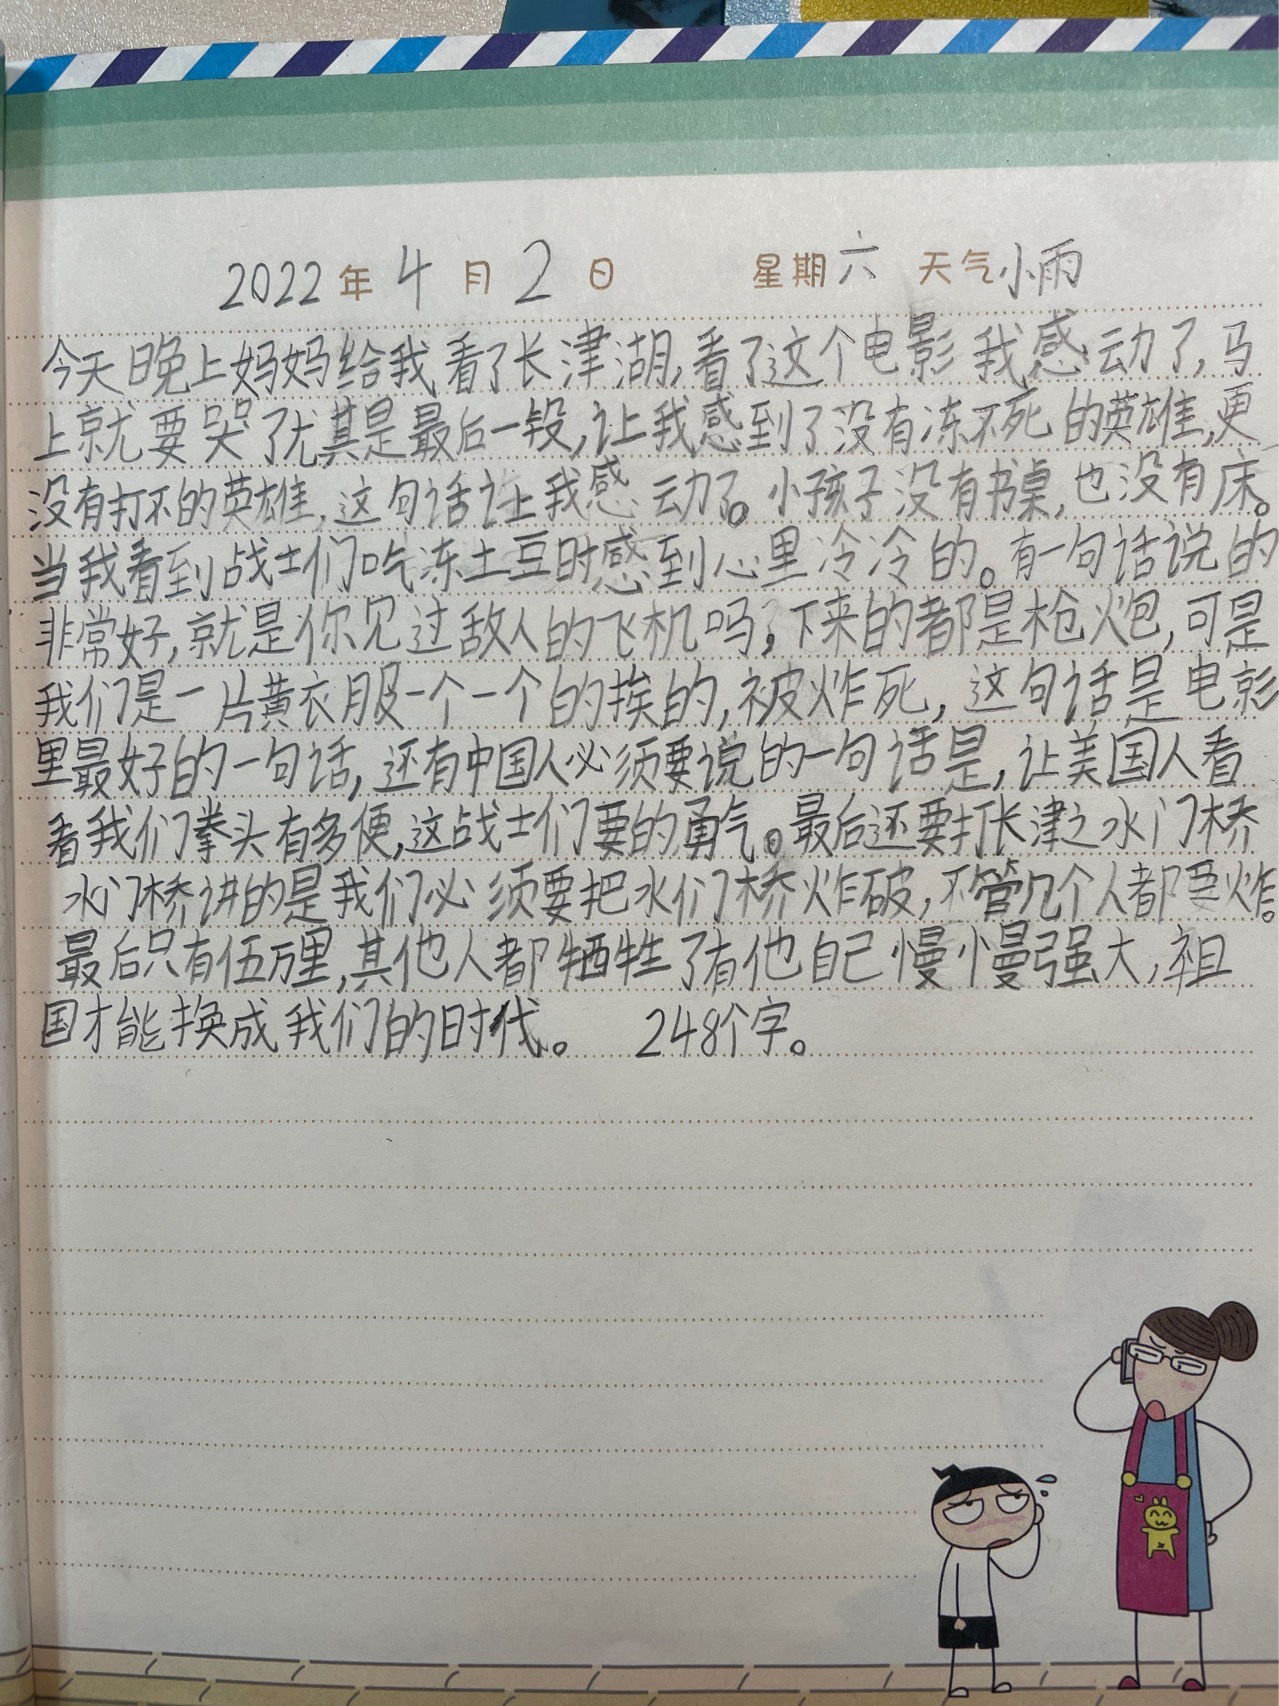 2022年4月2日 星期六 天气小雨
今天晚上妈妈给我看了长津湖,看了这个电影我感动了,马
上就要哭了尤其是最后一段,让我感到了没有冻不死的英雄,更
没有打不的英雄,这句话让我感动了。小孩子没有书桌,也没有床。
当我看到战士们吃冻土豆时感到心里冷冷的。有一句话说的
非常好,就是你见过敌人的飞机吗,下来的都是枪炮,可是
我们是一片黄衣服一个一个的挨的,被炸死,这句话是电影
里最好的一句话,还有中国人必须要说的一句话是,让美国人看
看我们拳头有多便,这战士们要的勇气。最后还要打长津之水门桥
水门桥讲的是我们必须要把水们桥炸破,不管几个人都要炸。
最后只有伍万里,其他人都牺牲了有他自己慢慢强大,祖
国才能换成我们的时代。 248个字。